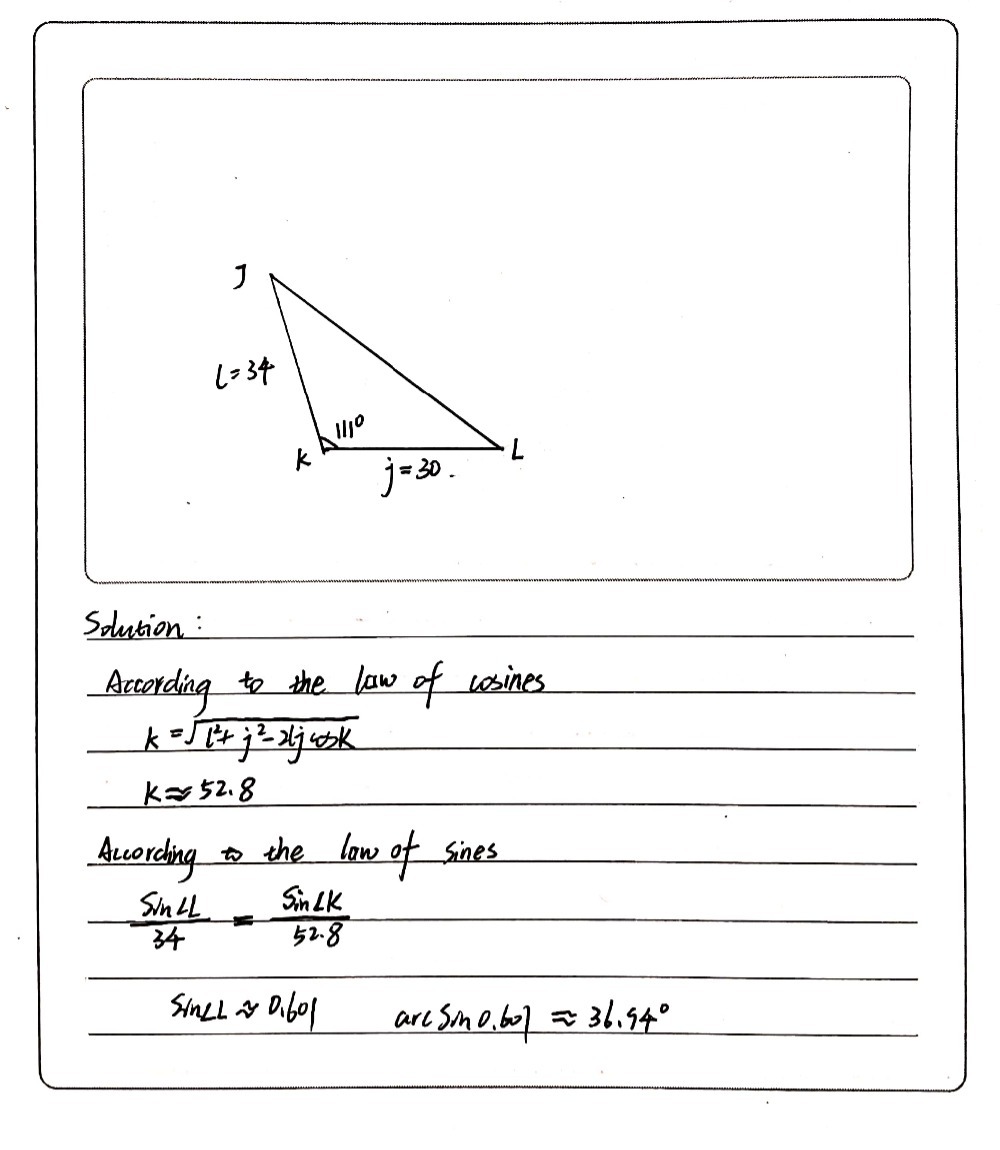 J
l=34
111°
K
L
j=30.
Solution:
According to the law of cosines
k=√l²+j²-2lj cosK
k≈52.8
According to the law of sines
Sin∠L/34 = Sin∠K/52.8
Sin∠L≈0.601 arcSin0.601≈36.94°